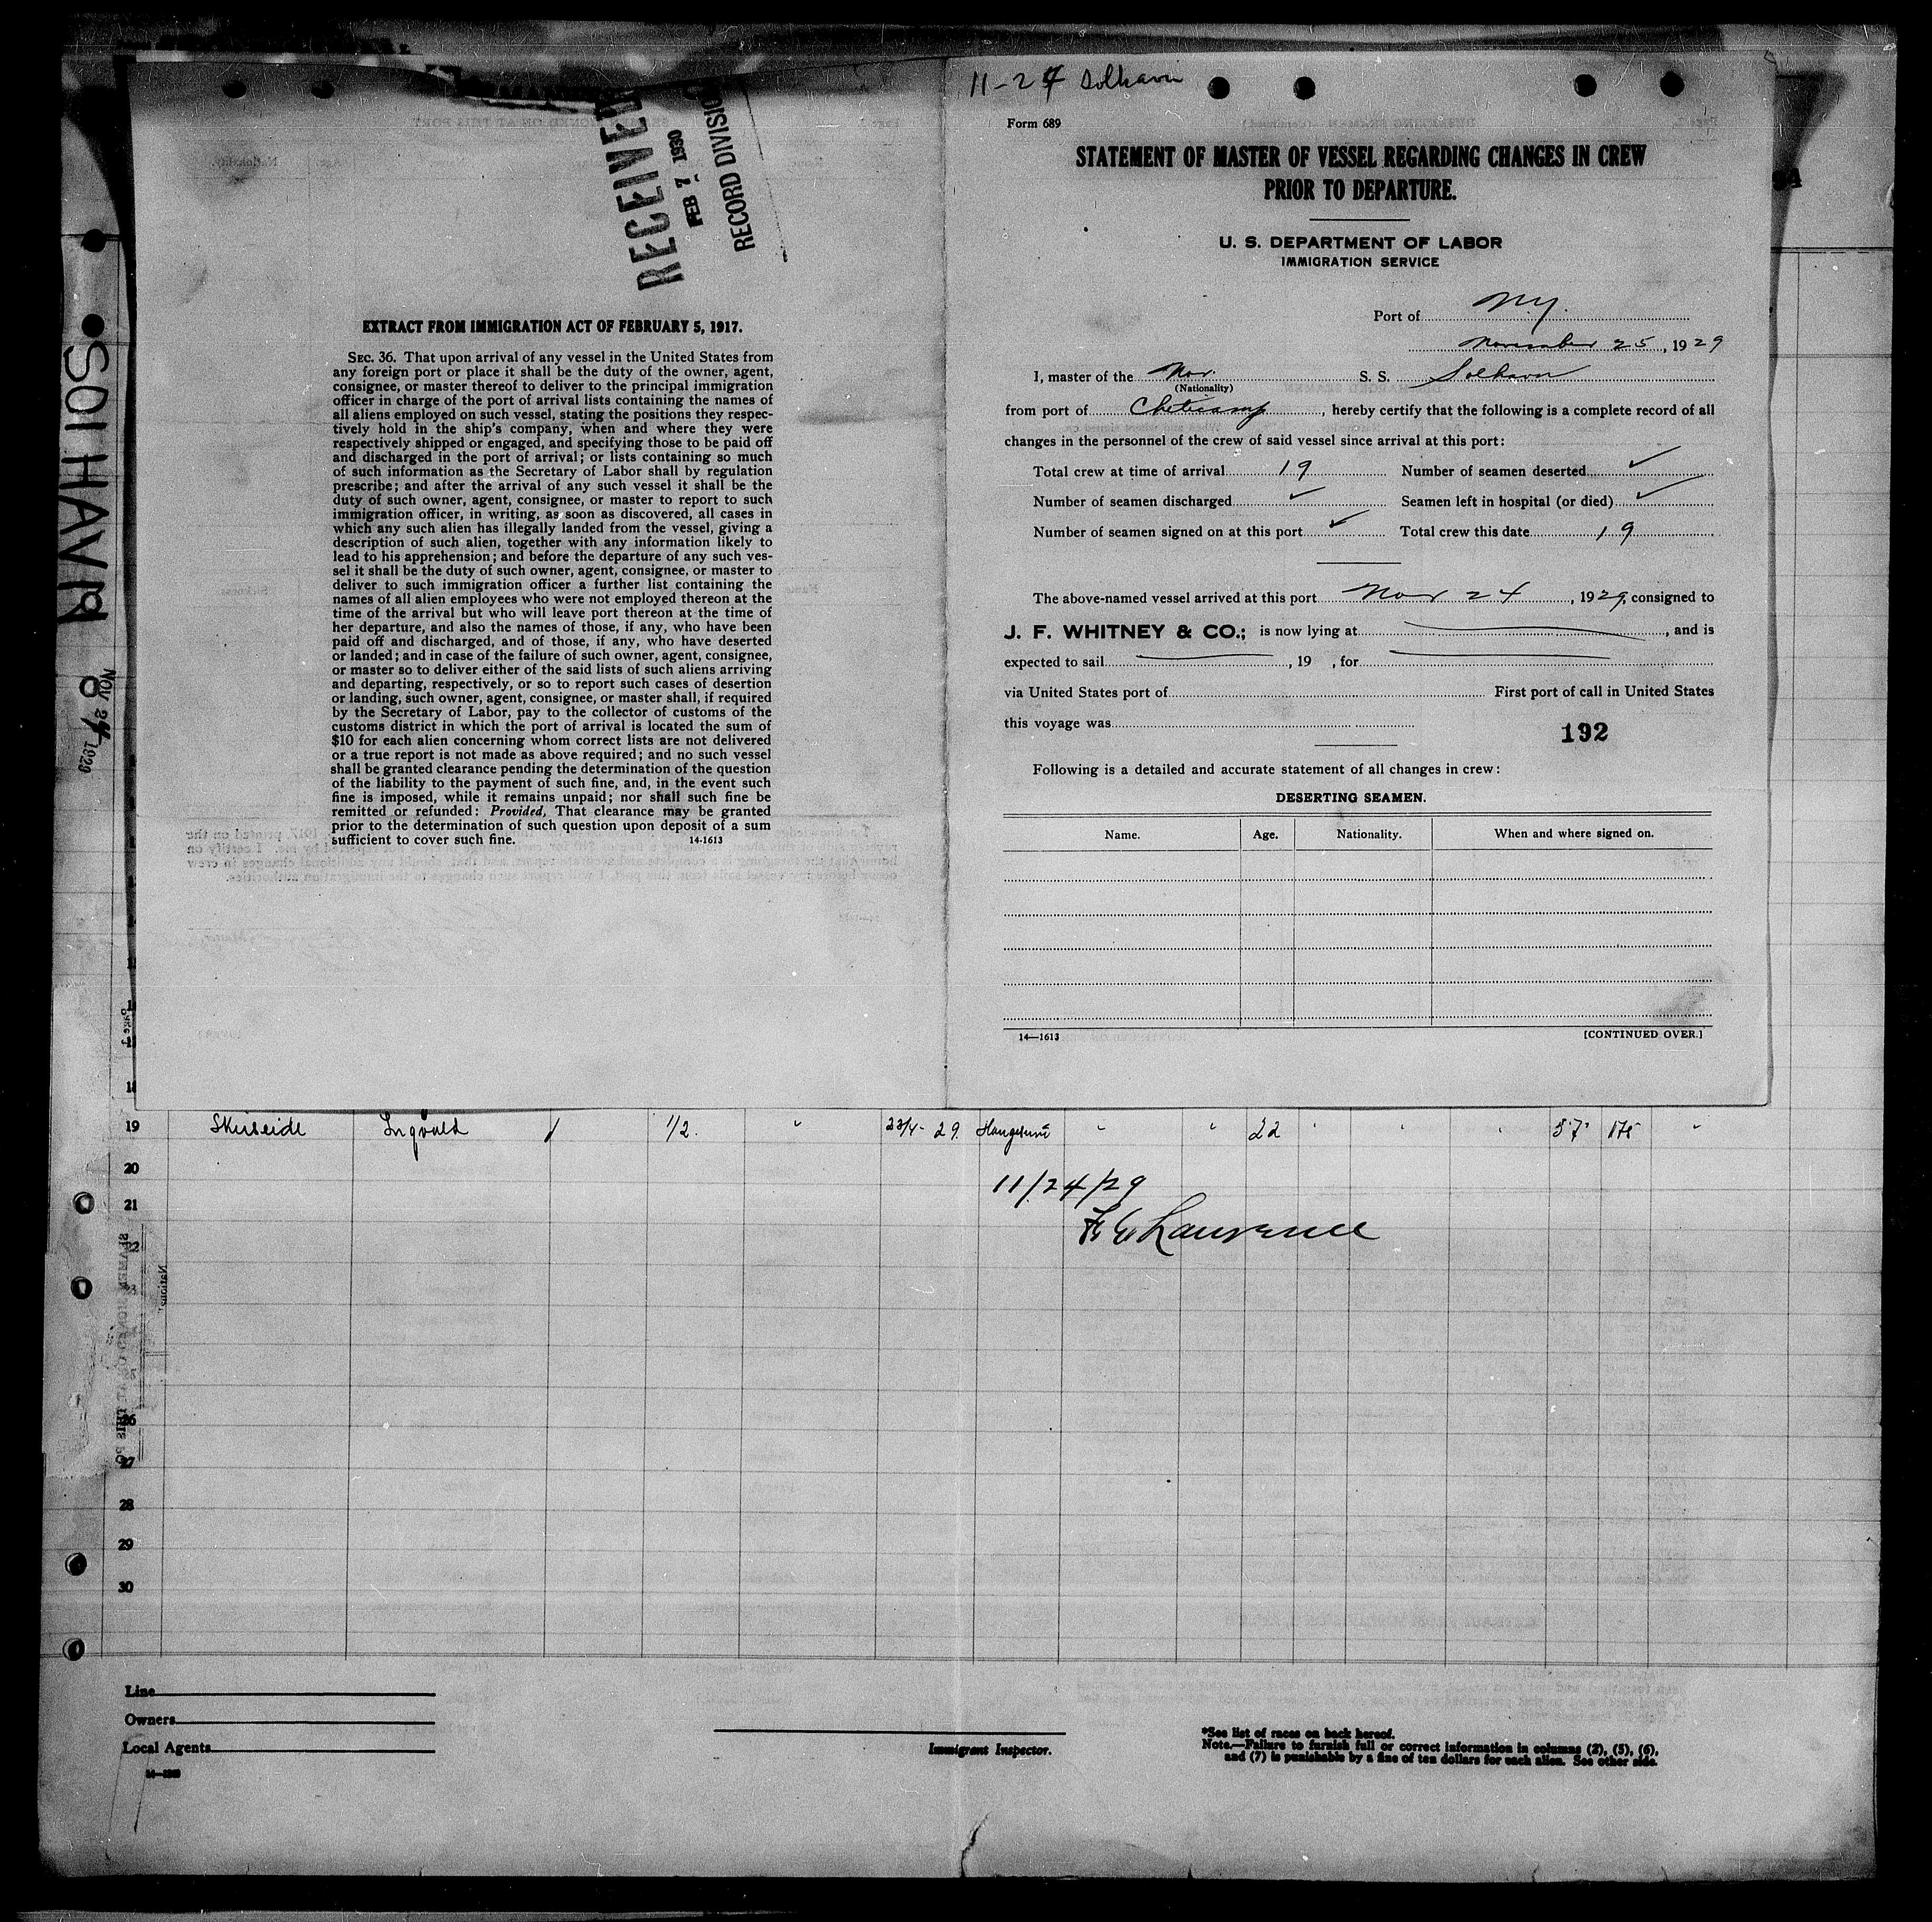 RECEIVED
FEB 7 1930
RECORD DIVISION
EXTRACT FROM IMMIGRATION ACT OF FEBRUARY 5, 1917.
SEC. 36. That upon arrival of any vessel in the United States from
any foreign port or place it shall be the duty of the owner, agent,
consignee, or master thereof to deliver to the principal immigration
officer in charge of the port of arrival lists containing the names of
all aliens employed on such vessel, stating the positions they respec-
tively hold in the ship's company, when and where they were
respectively shipped or engaged, and specifying those to be paid off
and discharged in the port of arrival; or lists containing so much
of such information as the Secretary of Labor shall by regulation
prescribe; and after the arrival of any such vessel it shall be the
duty of such owner, agent, consignee, or master to report to such
immigration officer, in writing, as soon as discovered, all cases in
which any such alien has illegally landed from the vessel, giving a
description of such alien, together with any information likely to
lead to his apprehension; and before the departure of any such ves-
sel it shall be the duty of such owner, agent, consignee, or master to
deliver to such immigration officer a further list containing the
names of all alien employees who were not employed thereon at the
time of the arrival but who will leave port thereon at the time of
her departure, and also the names of those, if any, who have been
paid off and discharged, and of those, if any, who have deserted
or landed; and in case of the failure of such owner, agent, consignee,
or master so to deliver either of the said lists of such aliens arriving
and departing, respectively, or so to report such cases of desertion
or landing, such owner, agent, consignee, or master shall, if required
by the Secretary of Labor, pay to the collector of customs of the
customs district in which the port of arrival is located the sum of
$10 for each alien concerning whom correct lists are not delivered
or a true report is not made as above required; and no such vessel
shall be granted clearance pending the determination of the question
of the liability to the payment of such fine, and, in the event such
fine is imposed, while it remains unpaid; nor shall such fine be
remitted or refunded: Provided, That clearance may be granted
prior to the determination of such question upon deposit of a sum
sufficient to cover such fine. 14-1613
11-24 Solhavn
Form 689
STATEMENT OF MASTER OF VESSEL REGARDING CHANGES IN CREW
PRIOR TO DEPARTURE.
U. S. DEPARTMENT OF LABOR
IMMIGRATION SERVICE
Port of N.Y.
November 25, 1929
I, master of the Nor. S. S. Solhavn
(Nationality)
from port of Cheticamp, hereby certify that the following is a complete record of all
changes in the personnel of the crew of said vessel since arrival at this port:
Total crew at time of arrival 19 Number of seamen deserted ✓
Number of seamen discharged ✓ Seamen left in hospital (or died) ✓
Number of seamen signed on at this port ✓ Total crew this date 19
The above-named vessel arrived at this port Nov 24, 1929, consigned to
J. F. WHITNEY & CO.; is now lying at , and is
expected to sail , 19 , for
via United States port of First port of call in United States
this voyage was
192
Following is a detailed and accurate statement of all changes in crew:
DESERTING SEAMEN.
Name. Age. Nationality. When and where signed on.
14—1613 [CONTINUED OVER.]
SOLHAVN
NOV 24 1929
19 Ingvald 1/2 " 23/4-29 " " 22 " " " 5'7" 175 "
20
11/24/29
21
Lawrence
26
27
28
29
30
Line
Owners
Local Agents
Immigrant Inspector.
*See list of races on back hereof.
Note.—Failure to furnish full or correct information in columns (2), (5), (6),
and (7) is punishable by a fine of ten dollars for each alien. See other side.